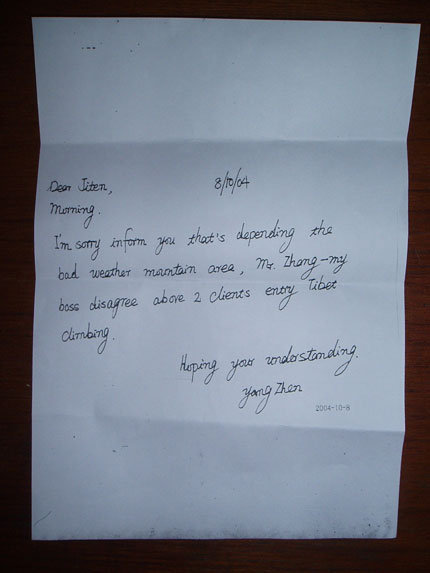 Dear Jiten,
8/10/04
Morning.
I'm sorry inform you that's depending the
bad weather mountain area, Mr. Zhang-my
boss disagree above 2 clients entry Tibet
climbing.
Hoping your understanding.
Yang Zhen
2004-10-8